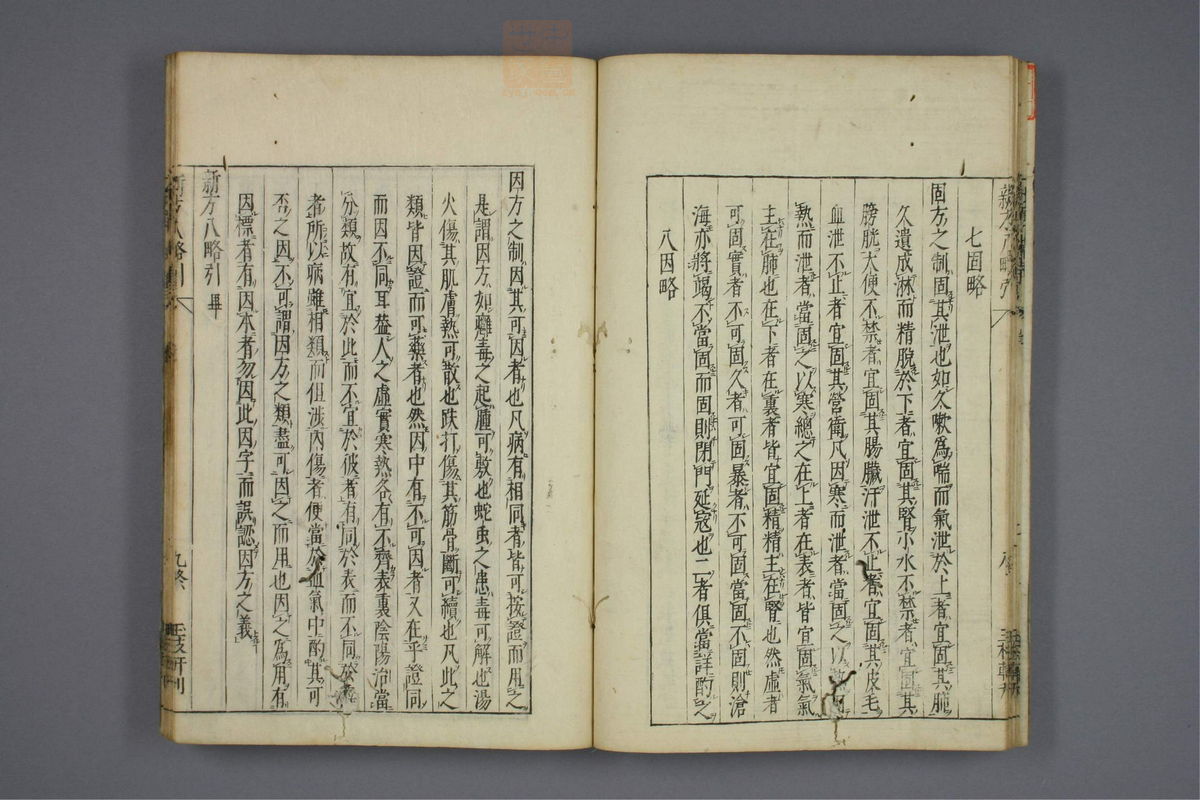 七固略
固方之制固其泄也如久嗽為喘而氣泄於上者宜固其肺
久遺成淋而精脫於下者宜固其腎小水不禁者宜固其
膀胱大便不禁者宜固其腸臟汗泄不止者宜固其皮毛
血泄不止者宜固其營衛凡因寒而泄者當固之以熱因
熱而泄者當固之以寒總之在上者在表者皆宜固氣氣
主在肺也在下者在裏者皆宜固精精主在腎也然虛者
可固實者不可固久者可固暴者不可固當固不固則滄
海亦將竭不當固而固則閉門延寇也二者俱當詳酌之
八因略
因方之制因其可因者也凡病有相同者皆可按證而用之
是謂因方如癰毒之起腫可敷也蛇虫之患毒可解也湯
火傷其肌膚熱可散也跌打傷其筋骨斷可續也凡此之
類皆因證而可藥者也然因中有不可因者又在乎證同
而因不同耳蓋人之虛實寒熱各有不齊表裏陰陽治當
分類故有宜於此而不宜於彼者有同於表而不同於裏
者所以病雖相類而但涉內傷者便當於血氣中酌其可
否之因不可謂因方之類盡可因之而用也因之為用有
因標者有因本者勿因此因字而誤認因方之義
新方八略引 畢
新方八略引
九終